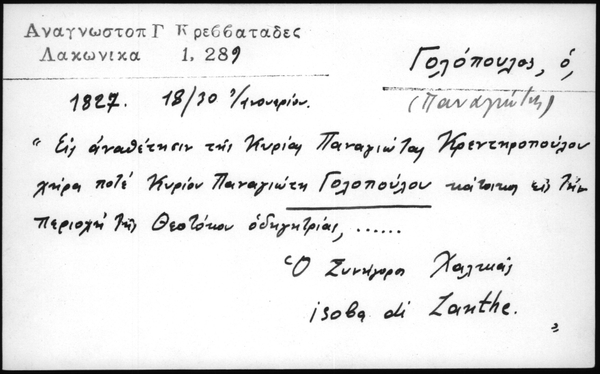 Αναγνωστοπ Γ Κρεββαταδες
Λακωνικα 1, 289
Γολόπουλος, ὁ,
(Παναγιώτης)
1827. 18/30 Ἰανουαρίου.
"Εἰς ἀναθέτησιν τῆς Κυρίας Παναγιώτας Κρεντηροπούλου
χήρα ποτέ Κυρίου Παναγιώτη Γολοπούλου κάτοικος εἰς τήν
περιοχή τῆς Θεοτόκου ὁδηγητρίας, ......
Ὁ Συνήγορος Χαλικιάς
isoba di Zanthe. "